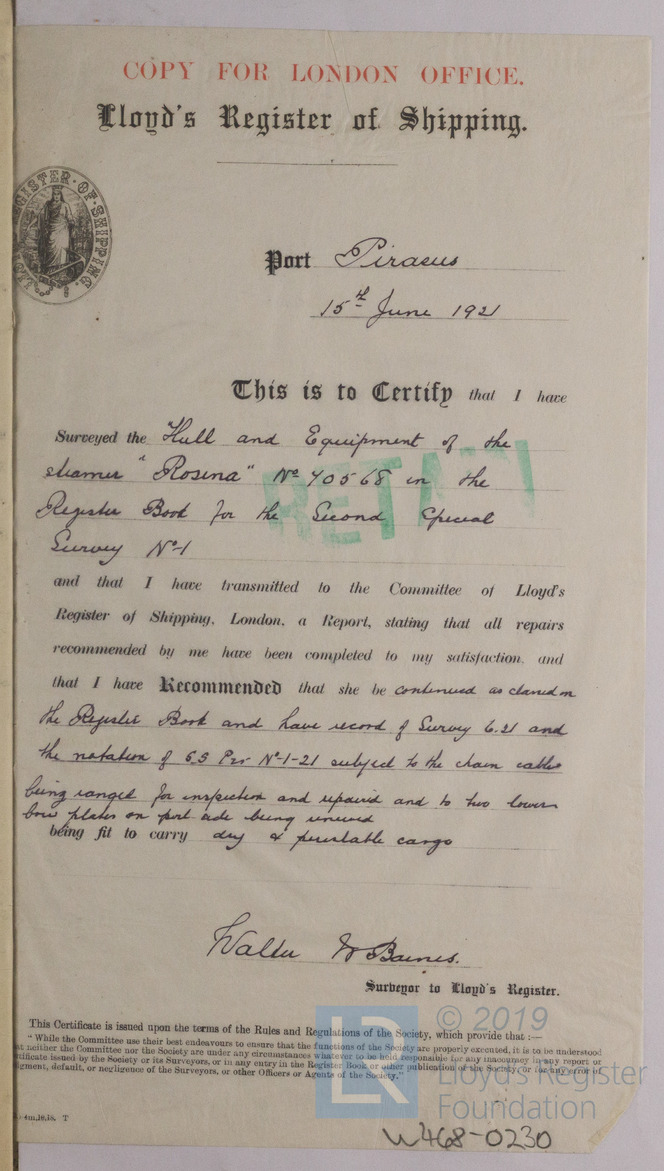 COPY FOR LONDON OFFICE.
Lloyd's Register of Shipping.
REGISTER · OF · SHIPPING
Port Piraeus
15th June 1921
This is to Certify that I have
Surveyed the Hull and Equipment of the
steamer "Rosina" No 70568 in the
Register Book for the Second Special
Survey No 1
RETAIN
and that I have transmitted to the Committee of Lloyd's
Register of Shipping, London, a Report, stating that all repairs
recommended by me have been completed to my satisfaction, and
that I have Recommended that she be continued as classed in
the Register Book and have record of Survey 6.21 and
the notation of S.S Pir No 1-21 subject to the chain cables
being ranged for inspection and repaired and to two lower
bow plates on port side being renewed
being fit to carry dry & perishable cargo
Walter W Baines.
Surveyor to Lloyd's Register.
This Certificate is issued upon the terms of the Rules and Regulations of the Society, which provide that :—
"While the Committee use their best endeavours to ensure that the functions of the Society are properly executed, it is to be understood
neither the Committee nor the Society are under any circumstances whatever to be held responsible for any inaccuracy in any report or
issued by the Society or its Surveyors, or in any entry in the Register Book or other publication of the Society, or for any error of
default, or negligence of the Surveyors, or other Officers or Agents of the Society."
T
© 2019
LR
Lloyd's Register
Foundation
W468-0230